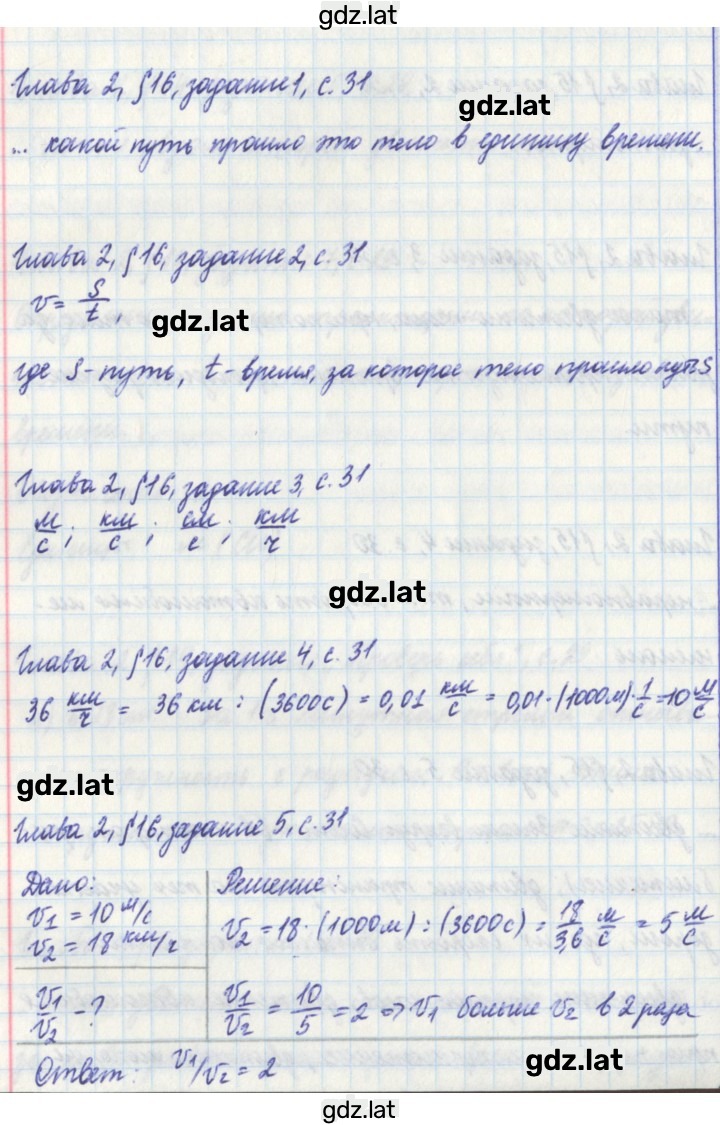 gdz.lat
Глава 2, §16, задание 1, с. 31
gdz.lat
... какой путь прошло это тело в единицу времени.
Глава 2, §16, задание 2, с. 31
v = S/t
gdz.lat
где S - путь, t - время, за которое тело прошло путь S
Глава 2, §16, задание 3, с. 31
м/с; км/с; см/с; км/ч
gdz.lat
Глава 2, §16, задание 4, с. 31
36 км/ч = 36 км : (3600с) = 0,01 км/с = 0,01·(1000м)·1/с = 10 м/с
gdz.lat
Глава 2, §16, задание 5, с. 31
Дано:
v₁ = 10 м/с
v₂ = 18 км/ч
v₁/v₂ - ?
Решение:
v₂ = 18·(1000м) : (3600с) = 18/3,6 м/с = 5 м/с
v₁/v₂ = 10/5 = 2 => v₁ больше v₂ в 2 раза
Ответ: v₁/v₂ = 2
gdz.lat
gdz.lat